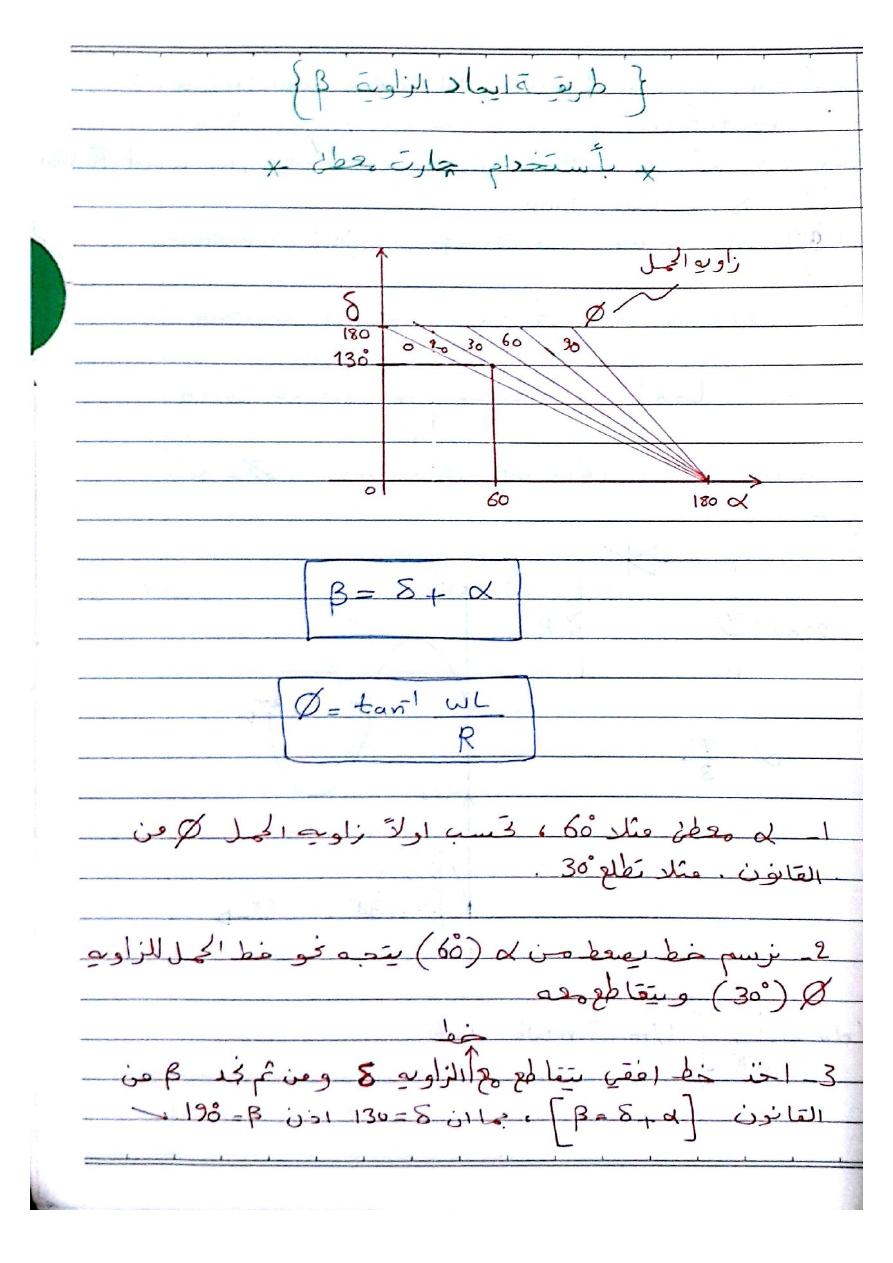 { طريقة ايجاد الزاوية β }
* بأستخدام چارت معطى *
زاويه الحمل
δ
Ø
180
0 20 30 60 90
130°
0
60
180 α
β = δ + α
Ø = tan⁻¹ wL / R
1- α معطى مثلا 60° ، نحسب اولاً زاويه الحمل Ø من
القانون . مثلا تطلع 30° .
2- نرسم خط يصعد من α (60°) يتجه نحو خط الحمل للزاويه
Ø (30°) ويتقاطع معه
خط
3- اخذ خط افقي يتقاطع مع الزاويه δ ومن ثم نجد β من
القانون [β = δ + α] ، بما ان δ = 130 اذن β = 190°